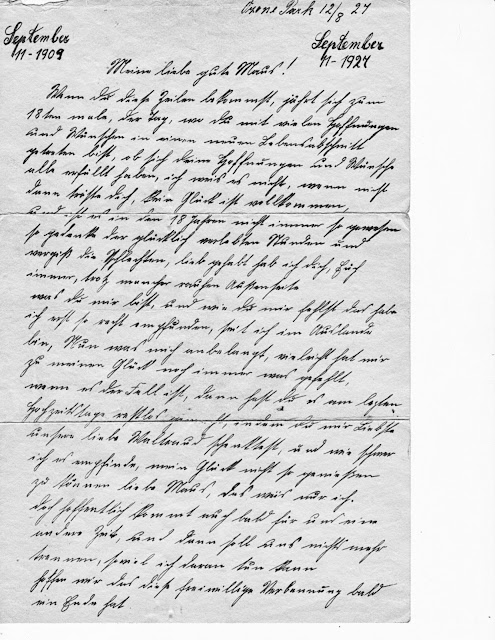 Ozone Park 12/8 27
September
11-1909
September
11-1927
Meine liebe gute Maus!
Wenn du diese Zeilen bekommst, jährt sich zum
18ten male, der Tag, wo du mit vielen Hoffnungen
und Wünschen in einen neuen Lebensabschnitt
getreten bist, ob sich deine Hoffnungen und Wünsche
alle erfüllt haben, ich weis es nicht, wenn nicht
dann tröste dich, kein Glück ist vollkommen,
und ist es in den 18 Jahren nicht immer so gewesen
so gedenke der glücklich verlebten Stunden und
vergiß die Schlechten, lieb gehabt hab ich dich, Euch
immer, trotz mancher rauhen Aussenseite
was du mir bist, und wie du mir fehlst das habe
ich erst so recht empfunden, seit ich im Auslande
bin, Nun was mich anbelangt, vieleicht hat mir
zu meinen Glück noch immer was gefehlt,
wenn es der Fall ist, dann hast du es am lezten
Hochzeitstage restlos indem du mir Liebste
unsere liebe Waltraud schenktest, und wie schwer
ich es empfinde, mein Glück nicht so genießen
zu können liebe Maus, das weis nur ich.
doch hoffentlich kommt auch bald für uns eine
andere Zeit, und dann soll uns nichts mehr
trennen, soviel ich daran tun kann
hoffen wir das diese freiwillige Verbannung bald
ein Ende hat